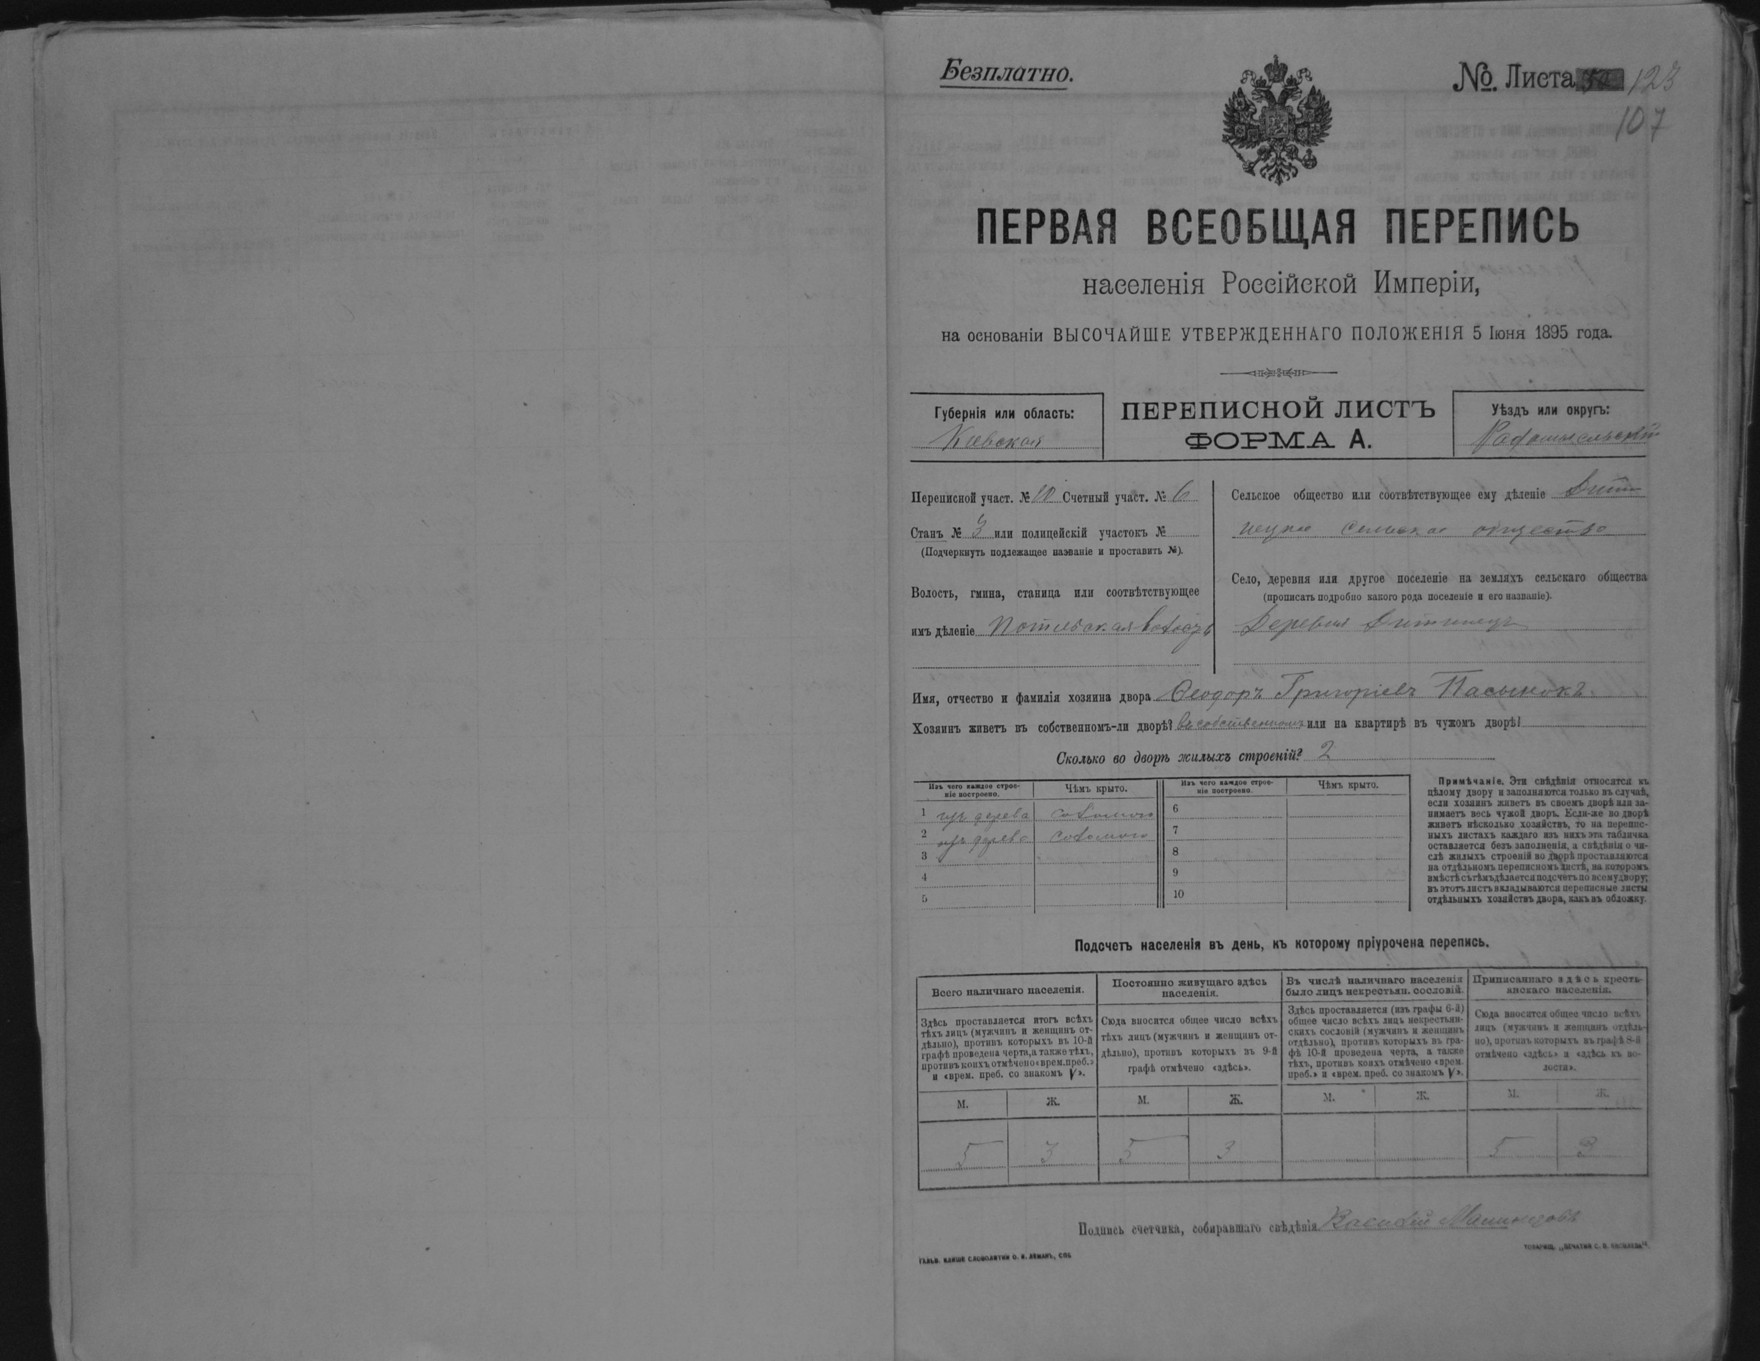 Безплатно.
№. Листа 123
107
ПЕРВАЯ ВСЕОБЩАЯ ПЕРЕПИСЬ
населенія Россійской Имперіи,
на основаніи ВЫСОЧАЙШЕ УТВЕРЖДЕННАГО ПОЛОЖЕНІЯ 5 Іюня 1895 года.
Губернія или область:
Кіевская
ПЕРЕПИСНОЙ ЛИСТЪ
ФОРМА А.
Уѣздъ или округъ:
Радомысльскій
Переписной участ. № 10 Счетный участ. № 6
Станъ № 3 или полицейскій участокъ №
(Подчеркнуть подлежащее названіе и проставить №).
Волость, гмина, станица или соотвѣтствующее
имъ дѣленіе Потіевская волость
Сельское общество или соотвѣтствующее ему дѣленіе
сельское общество
Село, деревня или другое поселеніе на земляхъ сельскаго общества
(прописать подробно какого рода поселеніе и его названіе).
Деревня Дитинецъ
Имя, отчество и фамилія хозяина двора Ѳеодоръ Григоріевъ Пасынокъ
Хозяинъ живетъ въ собственномъ-ли дворѣ? въ собственномъ или на квартирѣ въ чужомъ дворѣ?
Сколько во дворѣ жилыхъ строеній? 2
Изъ чего каждое строе-
ніе построено.
Чѣмъ крыто.
1 изъ дерева соломою
2 изъ дерева соломою
3
4
5
Изъ чего каждое строе-
ніе построено.
Чѣмъ крыто.
6
7
8
9
10
Примѣчаніе. Эти свѣдѣнія относятся къ
цѣлому двору и заполняются только въ случаѣ,
если хозяинъ живетъ въ своемъ дворѣ или за-
нимаетъ весь чужой дворъ. Если-же во дворѣ
живетъ нѣсколько хозяйствъ, то на перепис-
ныхъ листахъ каждаго изъ нихъ эта табличка
оставляется безъ заполненія, а свѣдѣнія о чи-
слѣ жилыхъ строеній во дворѣ проставляются
на отдѣльномъ переписномъ листѣ, на которомъ
вмѣстѣ съ тѣмъ дѣлается подсчетъ по всему двору;
въ этотъ листъ вкладываются переписные листы
отдѣльныхъ хозяйствъ двора, какъ въ обложку.
Подсчетъ населенія въ день, къ которому пріурочена перепись.
Всего наличнаго населенія.
Здѣсь проставляется итогъ всѣхъ
тѣхъ лицъ (мужчинъ и женщинъ от-
дѣльно), противъ которыхъ въ 10-й
графѣ проведена черта, а также тѣхъ,
противъ коихъ отмѣчено «врем. преб.»
и «врем. преб. со знакомъ V».
М. Ж.
5 3
Постоянно живущаго здѣсь
населенія.
Сюда вносится общее число всѣхъ
тѣхъ лицъ (мужчинъ и женщинъ от-
дѣльно), противъ которыхъ въ 9-й
графѣ отмѣчено «здѣсь».
М. Ж.
5 3
Въ числѣ наличнаго населенія
было лицъ некрестьян. сословій.
Здѣсь проставляется (изъ графы 6-й)
общее число всѣхъ лицъ некрестьян-
скихъ сословій (мужчинъ и женщинъ
отдѣльно), противъ которыхъ въ гра-
фѣ 10-й проведена черта, а также
тѣхъ, противъ коихъ отмѣчено «врем.
преб.» и «врем. преб. со знакомъ V».
М. Ж.
Приписаннаго здѣсь кресть-
янскаго населенія.
Сюда вносится общее число всѣхъ
лицъ (мужчинъ и женщинъ отдѣль-
но), противъ которыхъ въ графѣ 8-й
отмѣчено «здѣсь» и «здѣсь въ во-
лости».
М. Ж.
5 3
Подпись счетчика, собиравшаго свѣдѣнія
ГАЛЬВ. КЛИШЕ СЛОВОЛИТНИ О. И. ЛЕМАНЪ, СПБ